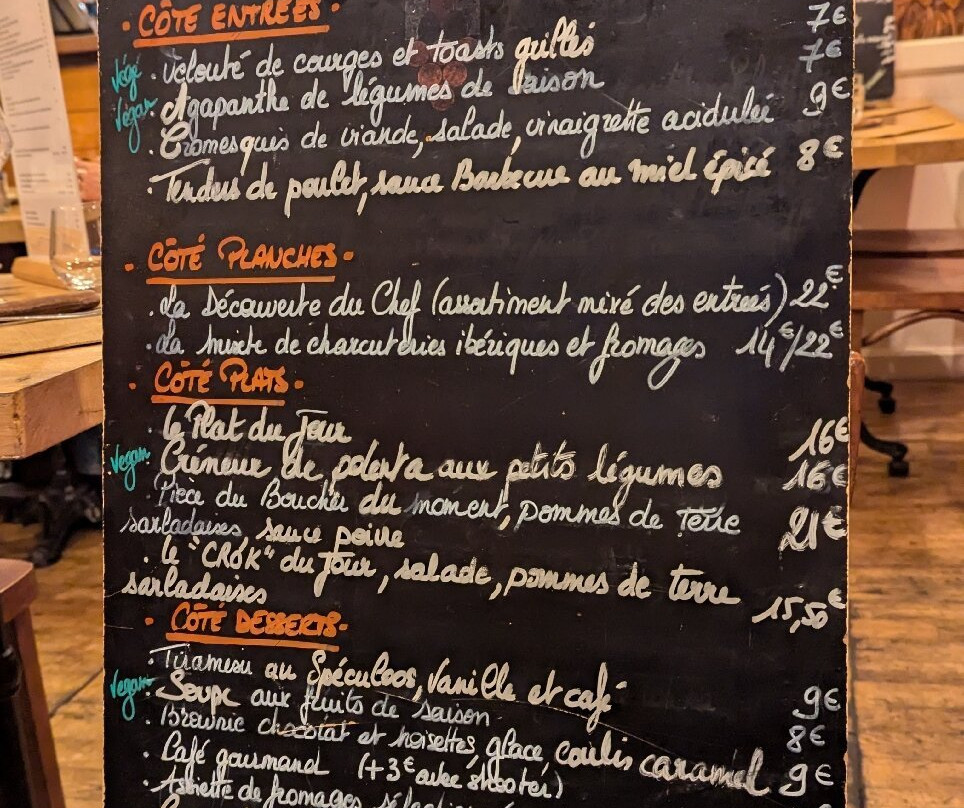 · CÔTÉ ENTRÉES ·
Végé · Velouté de courges et toasts grillés 7€
Végan · Agapanthe de légumes de saison 7€
· Cromesquis de viande, salade, vinaigrette acidulée 9€
· Tendus de poulet, sauce Barbecue au miel épicé 8€
· CÔTÉ PLANCHES ·
· La Découverte du Chef (assortiment mixé des entrées) 22€
· La mixte de charcuteries ibériques et fromages 14€/22€
· CÔTÉ PLATS ·
· Le Plat du Jour 16€
Vegan · Crémeux de polenta aux petits légumes 16€
· Pièce du Boucher du moment, pommes de terre
sarladaises, sauce poivre 21€
· Le "CRÖK" du Jour, salade, pommes de terre
sarladaises 15,50€
· CÔTÉ DESSERTS ·
· Tiramisu au Spéculoos, Vanille et café 9€
Vegan · Soupe aux fruits de saison 8€
· Brownie chocolat et noisettes, glace, coulis caramel 9€
· Café gourmand (+3€ avec shooter)
· Assiette de fromages